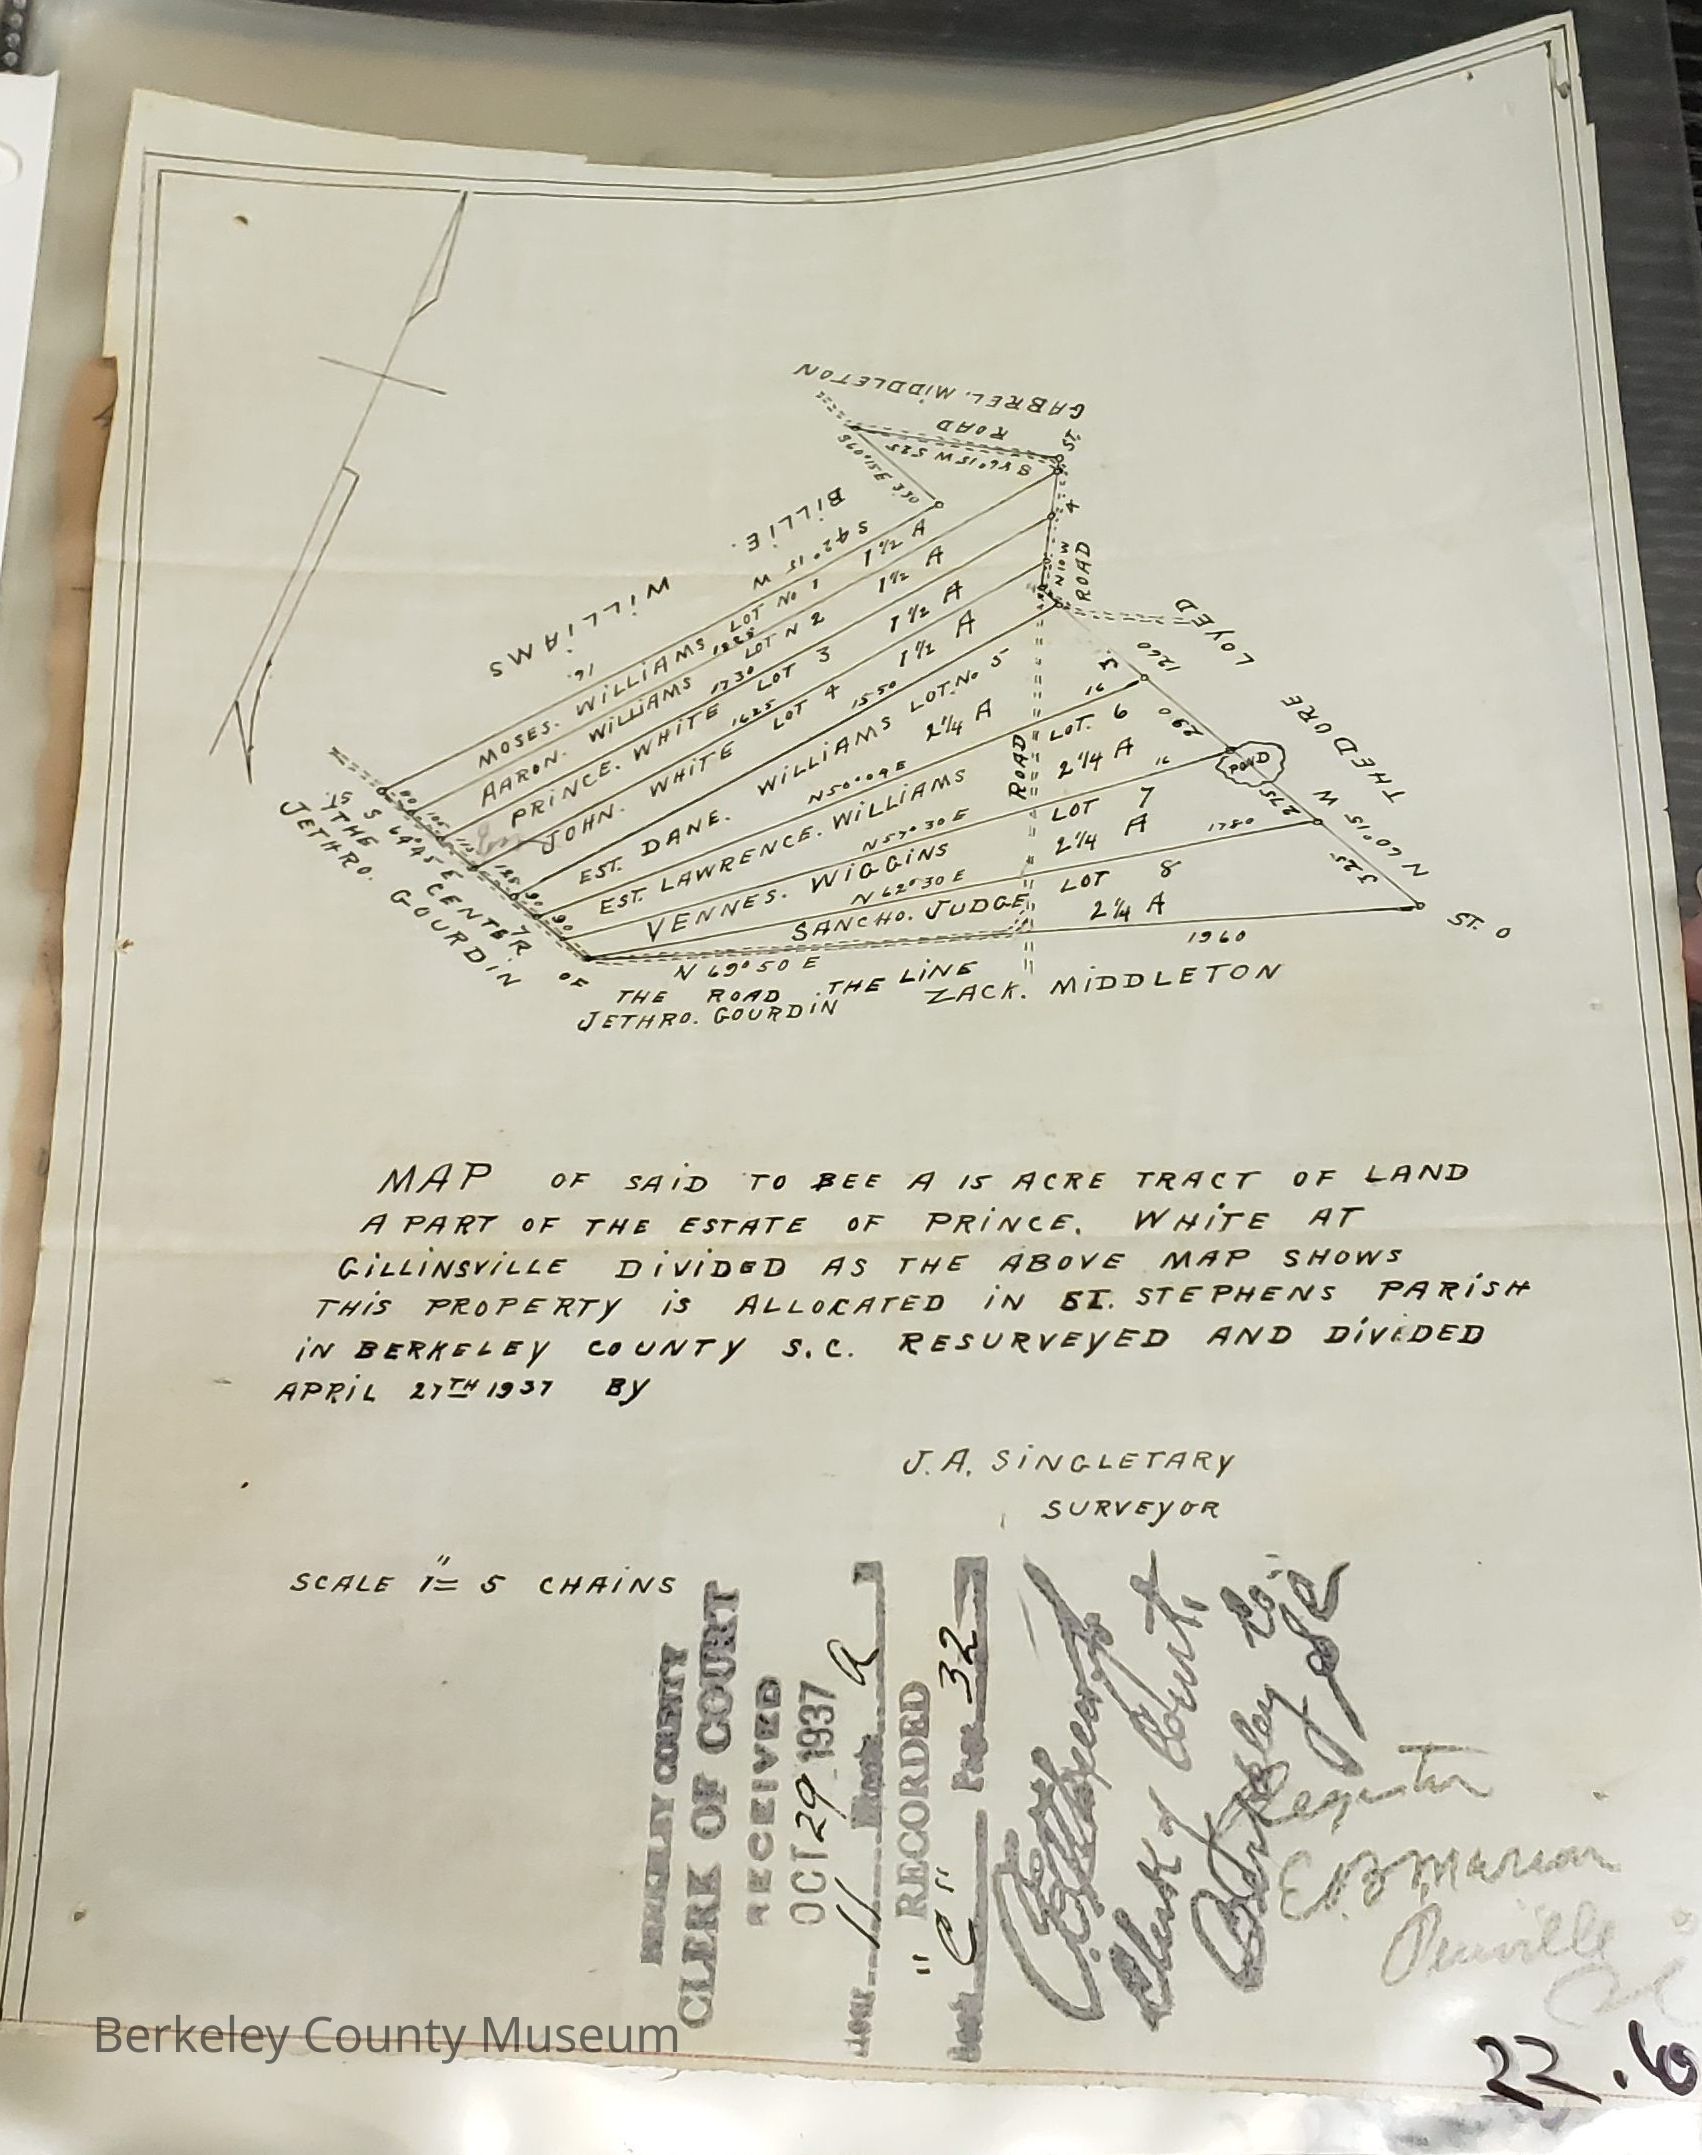 GABREL. MIDDLETON
ROAD
ST.
S 56°15 W 525
BILLIE. WILLIAMS
S 42° 15 W
16.
MOSES. WILLIAMS LOT No 1 1 1/2 A
1828
AARON. WILLIAMS LOT N 2 1 1/2 A
1730
PRINCE. WHITE LOT 3 1 1/2 A
1625
JOHN. WHITE LOT 4 1 1/2 A
1550
EST. DANE. WILLIAMS LOT. No 5
2 1/4 A
N 50° 09 E 16
EST. LAWRENCE. WILLIAMS LOT. 6
2 1/4 A
N 57° 30 E 16
VENNES. WIGGINS LOT 7
2 1/4 A
N 62° 30 E 1780
SANCHO. JUDGE LOT 8
2 1/4 A
1960
N 69° 50 E
N 10 W
ROAD
ROAD
THEDORE LOYED
1260
290
POND
275
N 60°15 W
325
ST. O
ST.
S 64°45 E CENTER OF
THE ROAD THE LINE
JETHRO. GOURDIN
JETHRO. GOURDIN
ZACK. MIDDLETON
MAP OF SAID TO BEE A 15 ACRE TRACT OF LAND
A PART OF THE ESTATE OF PRINCE. WHITE AT
GILLINSVILLE DIVIDED AS THE ABOVE MAP SHOWS
THIS PROPERTY IS ALLOCATED IN ST. STEPHENS PARISH
IN BERKELEY COUNTY S.C. RESURVEYED AND DIVIDED
APRIL 27TH 1937 BY
J. A. SINGLETARY
SURVEYOR
SCALE 1" = 5 CHAINS
BERKELEY COUNTY
CLERK OF COURT
RECEIVED
OCT 29 1937
HOUR 11 A
RECORDED
Book "C" Page 32
Clerk of Court.
Berkeley Co.
Register
E. B. Marion
22.6
Berkeley County Museum